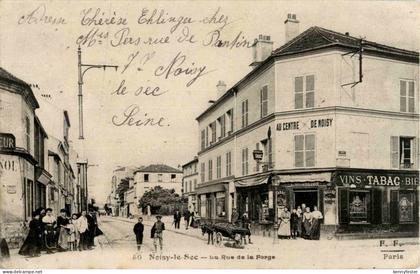 Adresse Thérèse Ehlinger chez
Mr Pers rue de Pantin
37
Noisy
le
sec
Seine
AU CENTRE DE NOISY
VINS-TABAC-BIÈ
PARIS
60 Noisy-le-Sec — La Rue de la Forge
E. F.